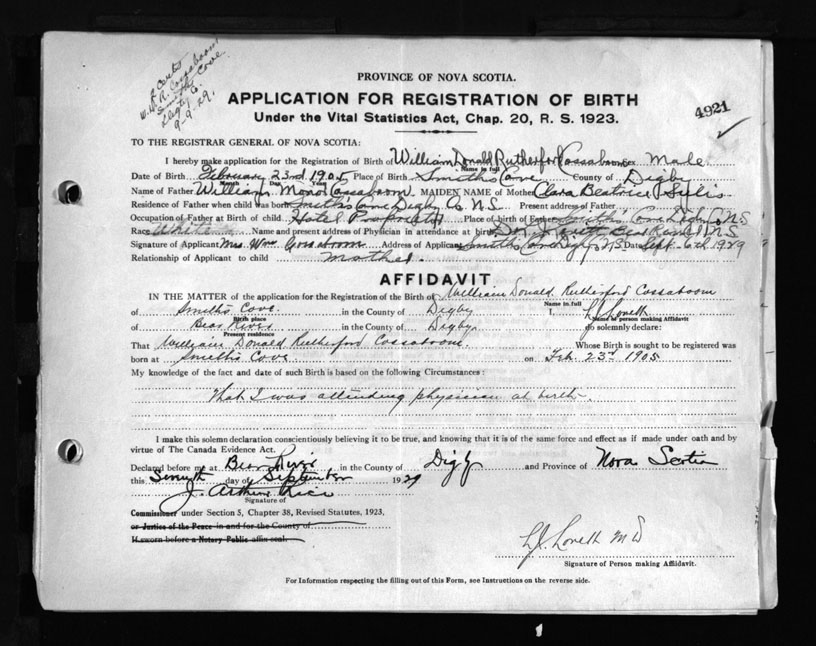 W. R. Cossaboom
Smiths Cove
Digby Co.
9-9-29.
PROVINCE OF NOVA SCOTIA.
APPLICATION FOR REGISTRATION OF BIRTH
Under the Vital Statistics Act, Chap. 20, R. S. 1923.
4921
TO THE REGISTRAR GENERAL OF NOVA SCOTIA:
I hereby make application for the Registration of Birth of William Donald Rutherford Cossaboom sex Male
Name in full
Date of Birth February 23rd 1905 Smith's Cove County of Digby
Month Day Year
Name of Father William Monro Cossaboom MAIDEN NAME of Mother Clara Beatrice Sulis
Residence of Father when child was born Smith's Cove Digby Co. N.S. Present address of Father
Occupation of Father at Birth of child. Hotel Proprietor Place of birth of Father Smiths Cove Digby Co N.S
Race White Name and present address of Physician in attendance at birth Dr. J. Lovett Bear River N.S
Signature of Applicant Mrs Wm Cossaboom Address of Applicant Smiths Cove Digby N.S Date Sept. 6th 1929
Relationship of Applicant to child mother.
AFFIDAVIT
IN THE MATTER of the application for the Registration of the Birth of William Donald Rutherford Cossaboom
Name in full
of Smith's Cove. in the County of Digby I, L J Lovett
Birth place Name of person making Affidavit
of Bear River in the County of Digby. do solemnly declare:
Present residence
That William Donald Rutherford Cossaboom. Whose Birth is sought to be registered was
born at Smith's Cove on Feb. 23rd 1905
My knowledge of the fact and date of such Birth is based on the following Circumstances:
That I was attending physician at birth.
I make this solemn declaration conscientiously believing it to be true, and knowing that it is of the same force and effect as if made under oath and by
virtue of The Canada Evidence Act.
Declared before me at Bear River in the County of Digby and Province of Nova Scotia
this Seventh day of September 1929
J. Arthur Rice
Signature of
Commissioner under Section 5, Chapter 38, Revised Statutes, 1923,
or Justice of the Peace in and for the County of
If sworn before a Notary Public affix seal.
L J. Lovett M D
Signature of Person making Affidavit.
For Information respecting the filling out of this Form, see Instructions on the reverse side.